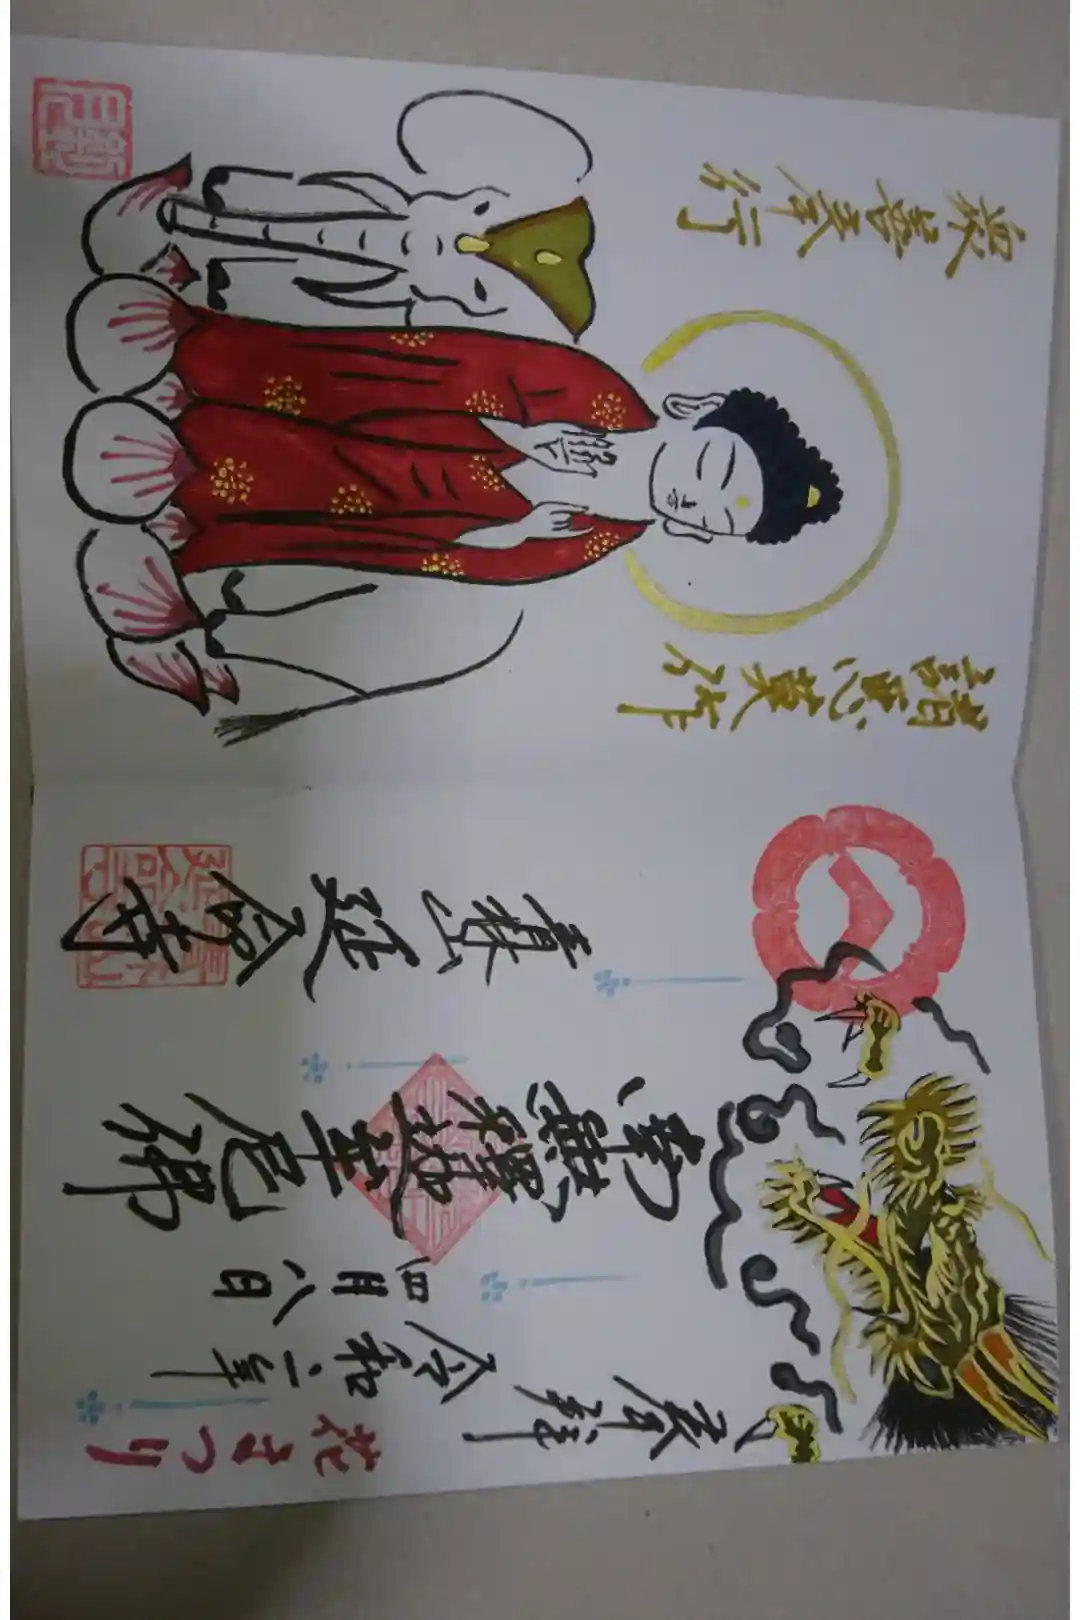 奉拝
花まつり
令和二年
四月八日
南無釋迦牟尼佛
青梅延命寺
諸悪莫作
衆善奉行